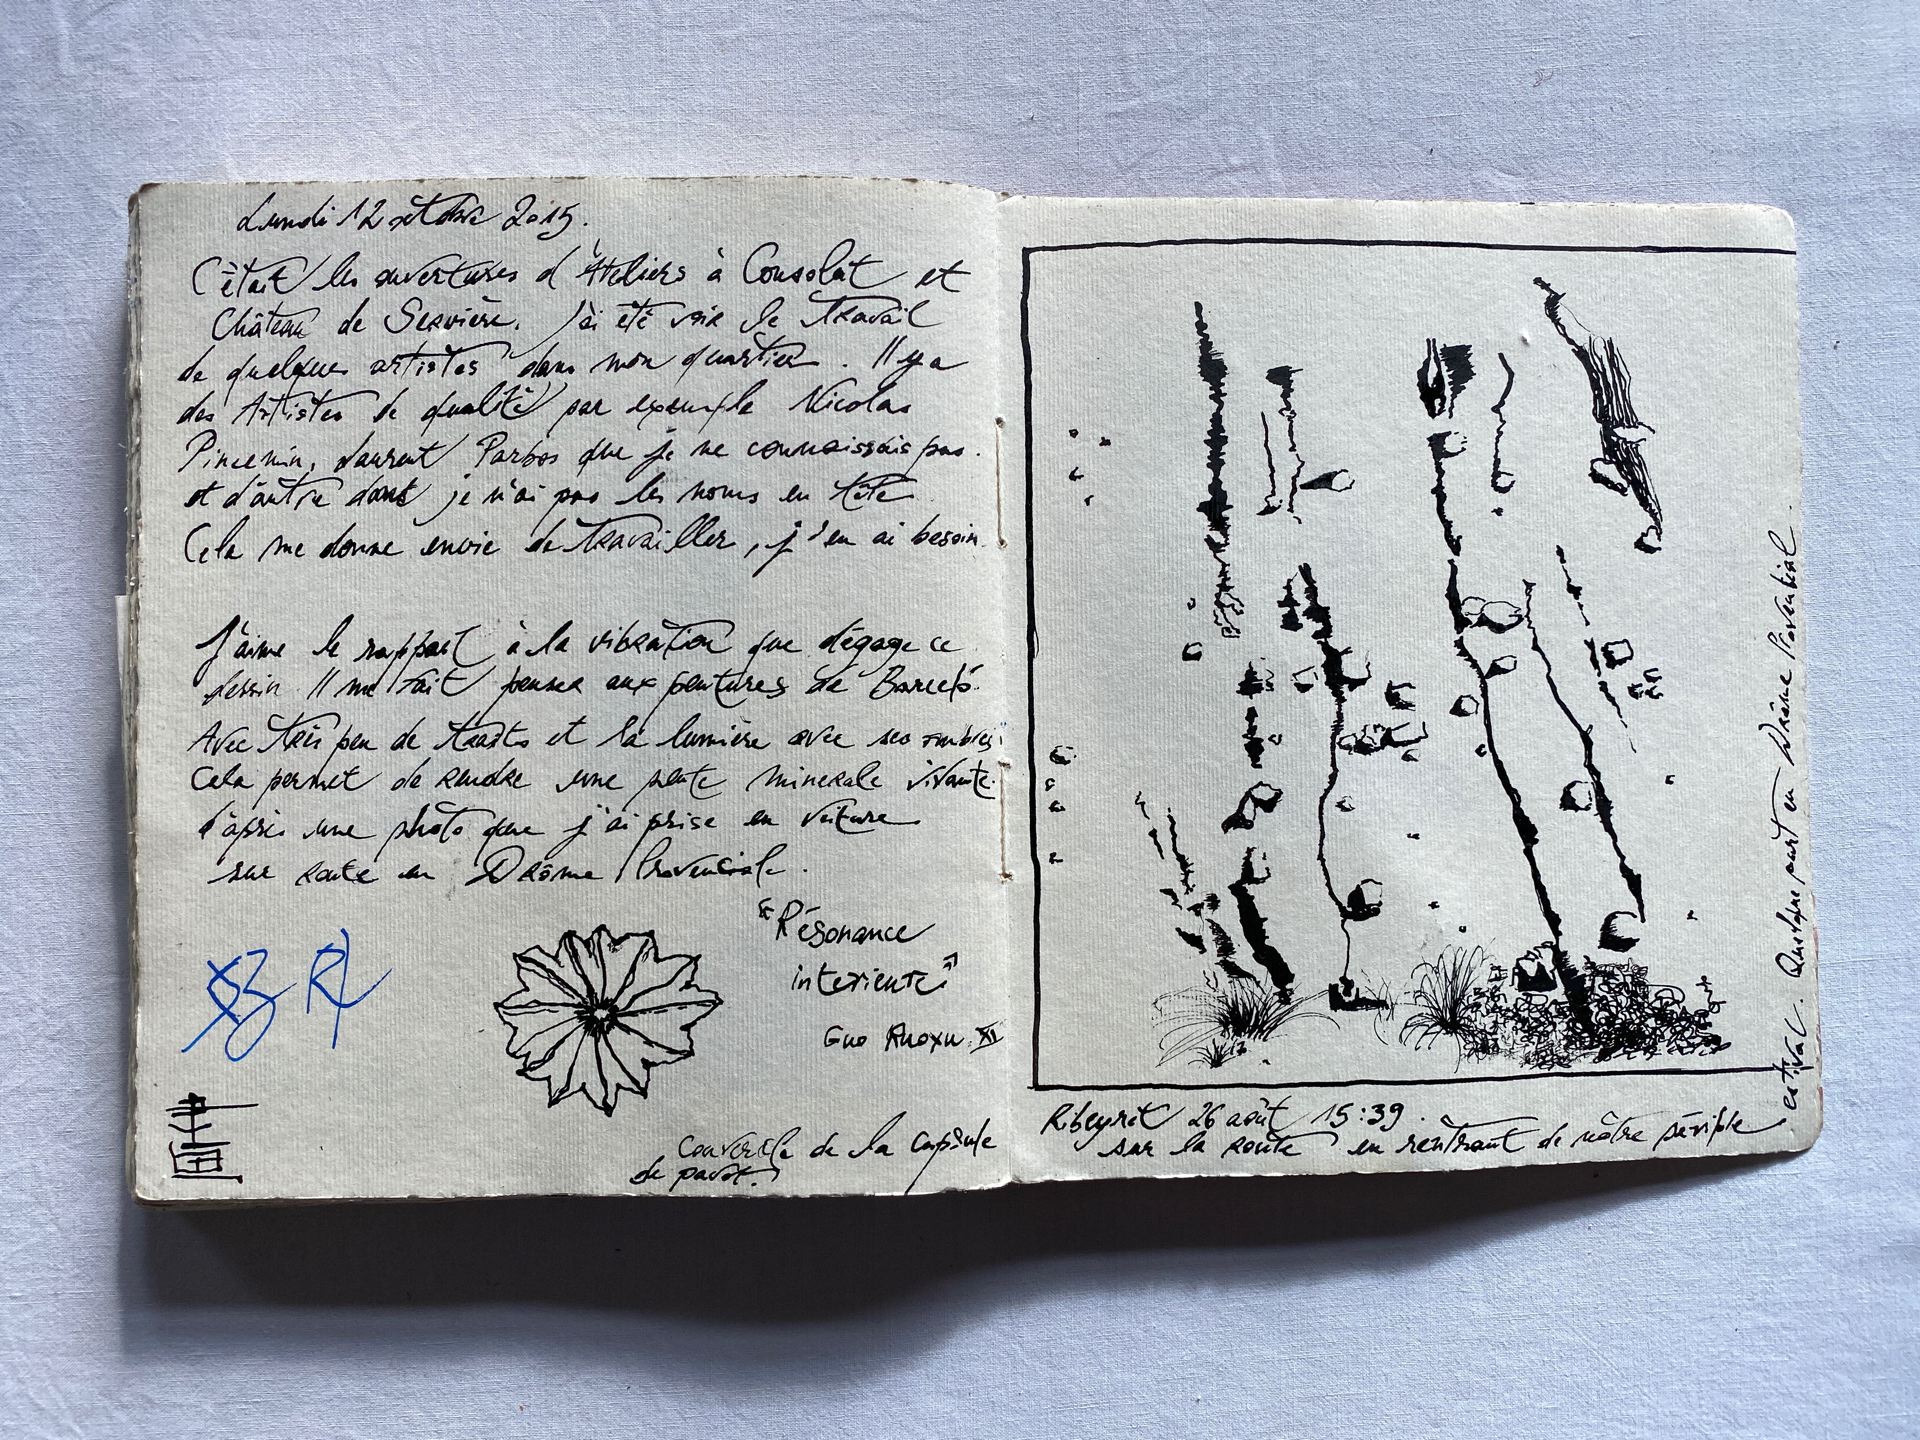 Lundi 12 octobre 2015.
C'était les ouvertures d'Ateliers à Consolat et
Château de Servière. J'ai été voir le travail
de quelques artistes dans mon quartier. Il y a
des Artistes de qualité par exemple Nicolas
Pincemin, Laurent Parbos que je ne connaissais pas.
et d'autre dont je n'ai pas les noms en tête
Cela me donne envie de travailler, j'en ai besoin.
J'aime le rapport à la vibration que dégage ce
dessin. Il me fait penser aux peintures de Barceló.
Avec très peu de traits et la lumière avec ses ombres
Cela permet de rendre une pente minerale vivante.
d'après une photo que j'ai prise en voiture
sur route en Drôme Provenciale.
"Résonance
interieure"
Guo Ruoxu XI
couvercle de la capsule
de pavot.
Ribeyret 26 août 15:39.
sur la route en rentrant de nôtre périple
estival. Quelque part en Drôme Provential.